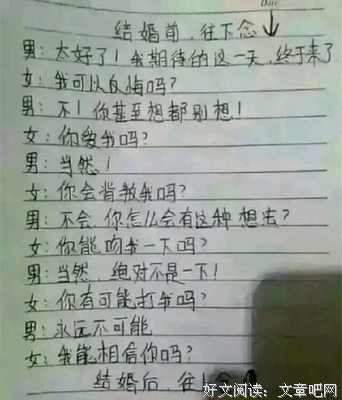 Date
结婚前，往下念
男：太好了！我期待的这一天，终于来了
女：我可以反悔吗？
男：不！你甚至想都别想！
女：你爱我吗？
男：当然！
女：你会背叛我吗？
男：不会，你怎么会有这种想法？
女：你能吻我一下吗？
男：当然，绝对不是一下！
女：你有可能打我吗？
男：永远不可能
女：我能相信你吗？
结婚后，往
好文阅读：文章吧网